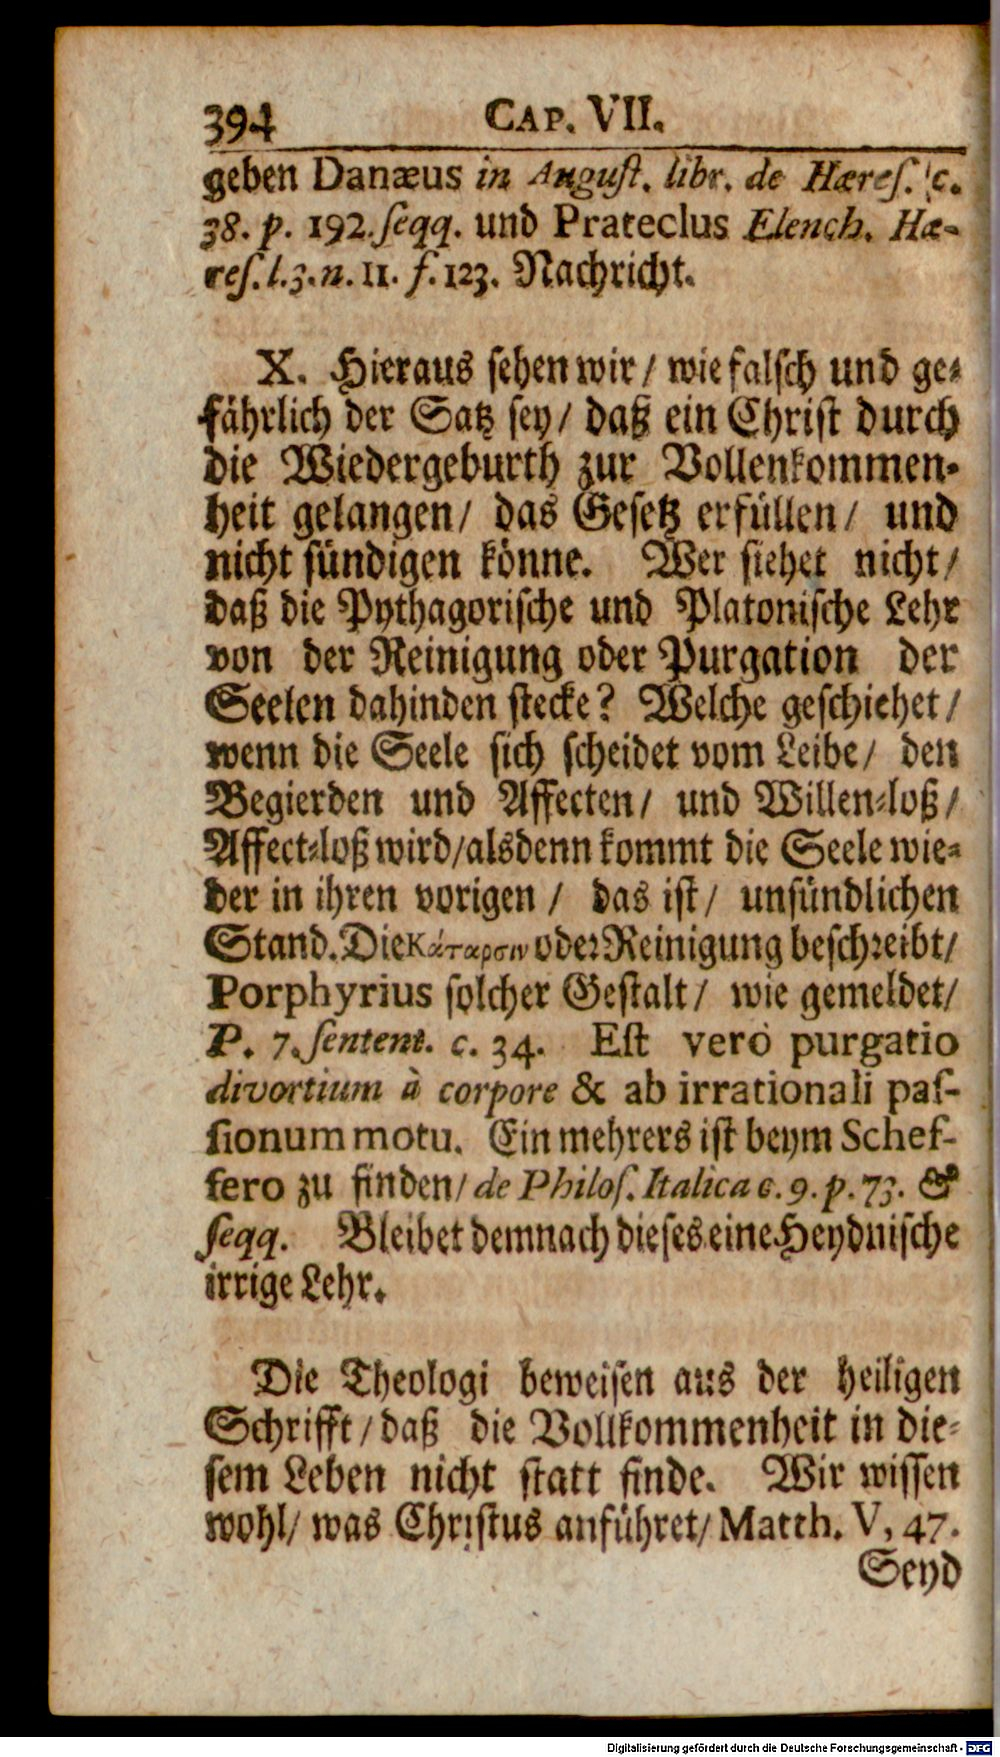 394 CAP. VII.
geben Danæus in Auguſt. libr. de Hæreſ. c.
38. p. 192. ſeqq. und Prateclus Elench. Hæ-
reſ. l. 3. n. 11. f. 123. Nachricht.
X. Hieraus ſehen wir / wie falſch und ge-
fährlich der Satz ſey / daß ein Chriſt durch
die Wiedergeburth zur Vollenkommen-
heit gelangen / das Geſetz erfüllen / und
nicht ſündigen könne. Wer ſiehet nicht /
daß die Pythagoriſche und Platoniſche Lehr
von der Reinigung oder Purgation der
Seelen dahinden ſtecke? Welche geſchiehet /
wenn die Seele ſich ſcheidet vom Leibe / den
Begierden und Affecten / und Willen-loß /
Affect-loß wird / alsdenn kommt die Seele wie-
der in ihren vorigen / das iſt / unſündlichen
Stand. Die Κάταρσιν oder Reinigung beſchreibt /
Porphyrius ſolcher Geſtalt / wie gemeldet /
P. 7. ſentent. c. 34. Eſt verò purgatio
divortium à corpore & ab irrationali paſ-
ſionum motu. Ein mehrers iſt beym Schef-
fero zu finden / de Philoſ. Italica c. 9. p. 73. &
ſeqq. Bleibet demnach dieſes eine Heydniſche
irrige Lehr.
Die Theologi beweiſen aus der heiligen
Schrifft / daß die Vollkommenheit in die-
ſem Leben nicht ſtatt finde. Wir wiſſen
wohl / was Chriſtus anführet / Matth. V, 47.
Seyd
Digitalisierung gefördert durch die Deutsche Forschungsgemeinschaft - DFG